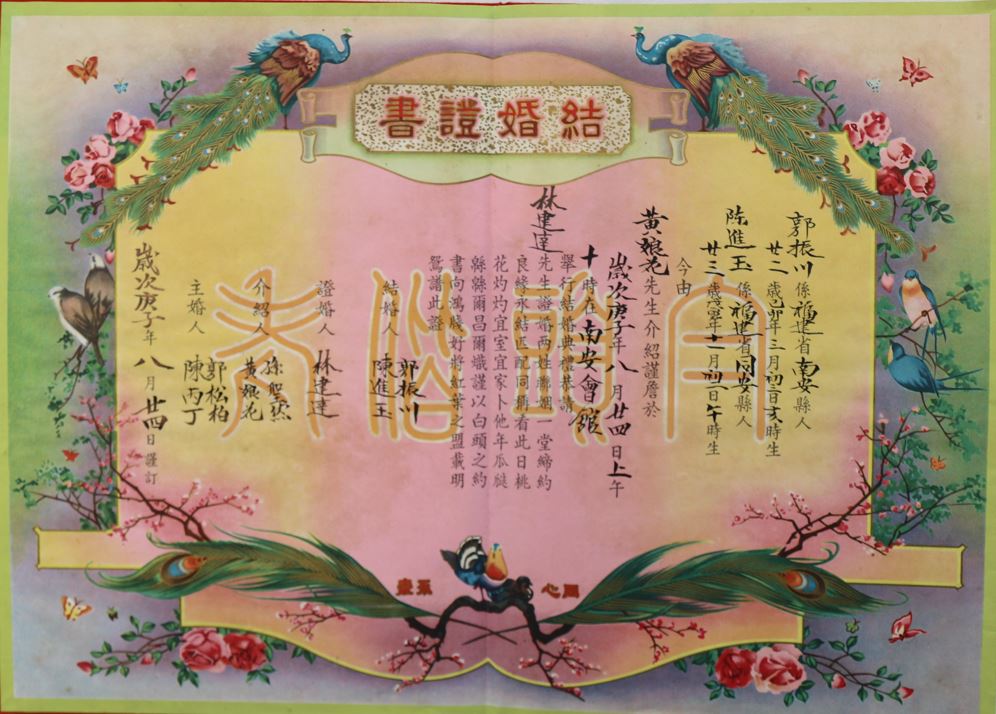 結婚證書
郭振川係福建省南安縣人
廿二歲己卯年三月初三日亥時生
陳進玉係福建省同安縣人
廿三歲戊寅年十一月初一日午時生
今由
黃娘花先生介紹謹詹於
歲次庚子年八月廿四日上午
十時在南安會館
舉行結婚典禮恭請
林建達先生證婚兩姓聯姻一堂締約
良緣永結匹配同稱看此日桃
花灼灼宜室宜家卜他年瓜瓞
緜緜爾昌爾熾謹以白頭之約
書向鴻牋好將紅葉之盟載明
鴛譜此證
結婚人 郭振川 陳進玉
證婚人 林建達
介紹人 黃娘花
主婚人 郭松柏 陳丙丁
歲次庚子年八月廿四日謹訂